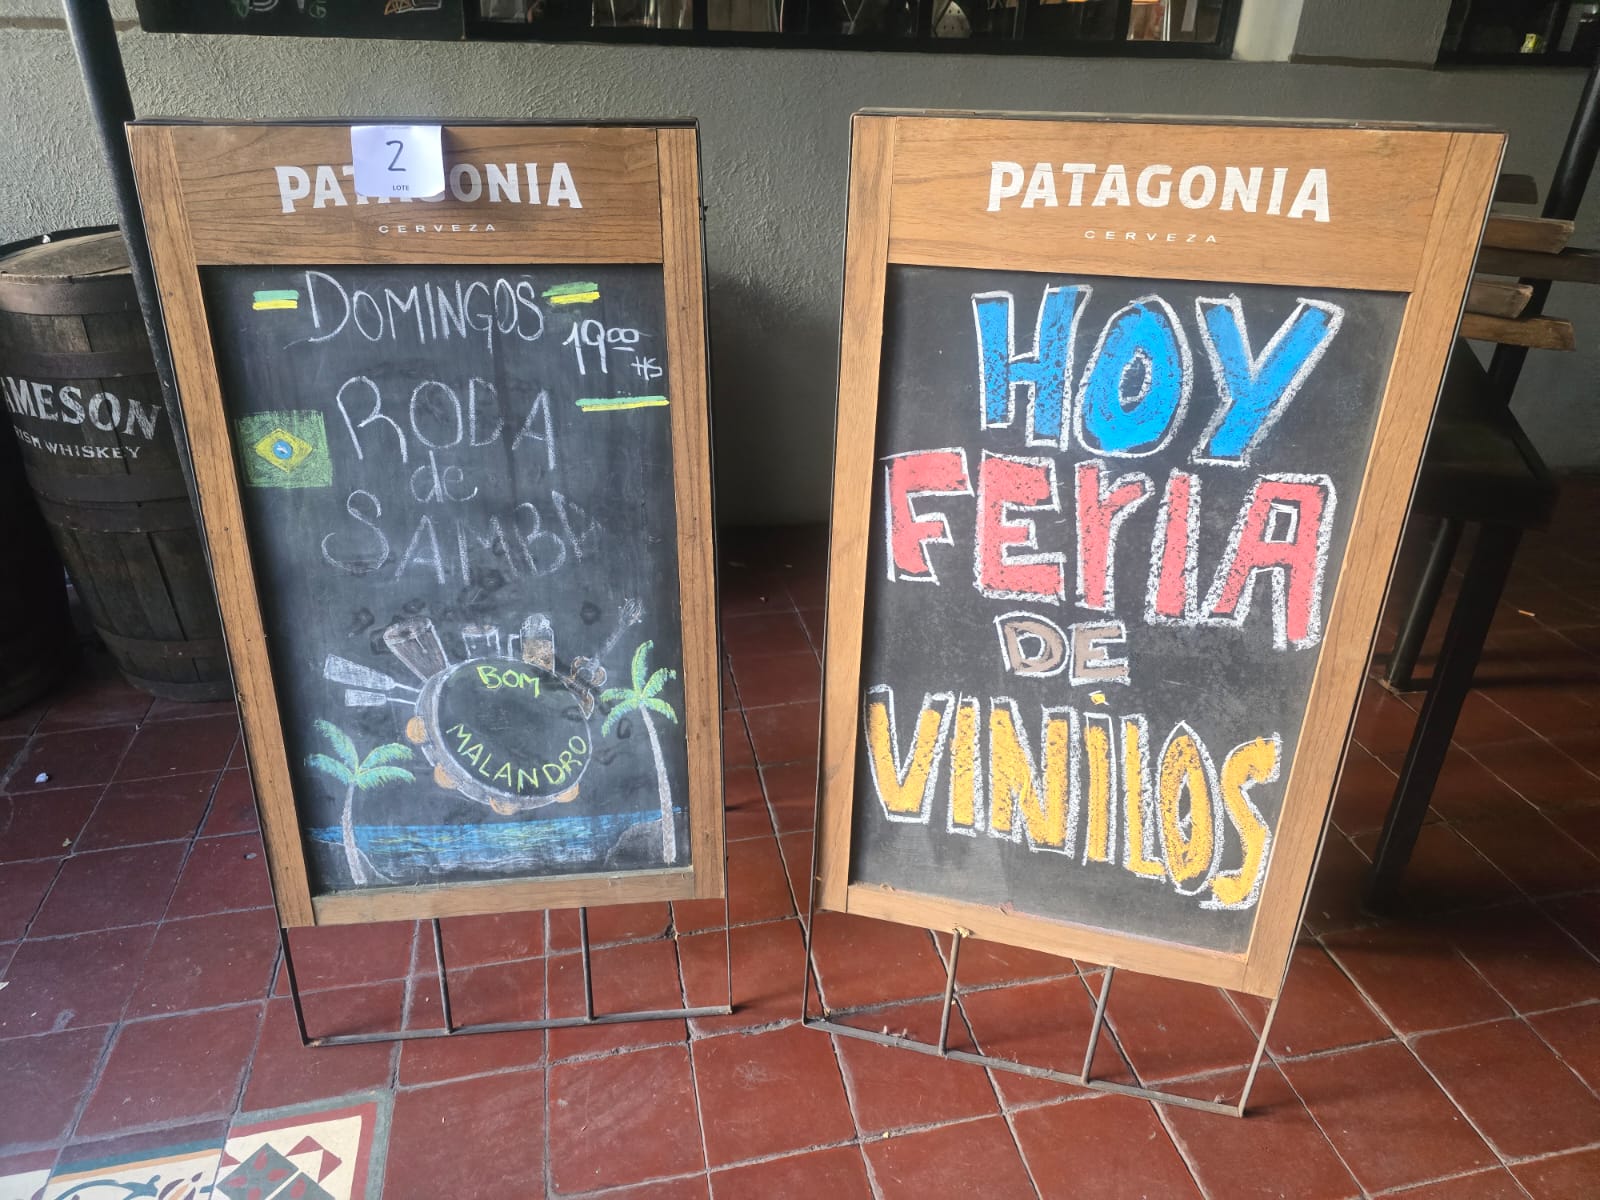 2
LOTE
PATAGONIA
CERVEZA
DOMINGOS
1900
HS
RODA
de
SAMBA
BOM
MALANDRO
PATAGONIA
CERVEZA
HOY
FERIA
DE
VINILOS
AMESON
WHISKEY